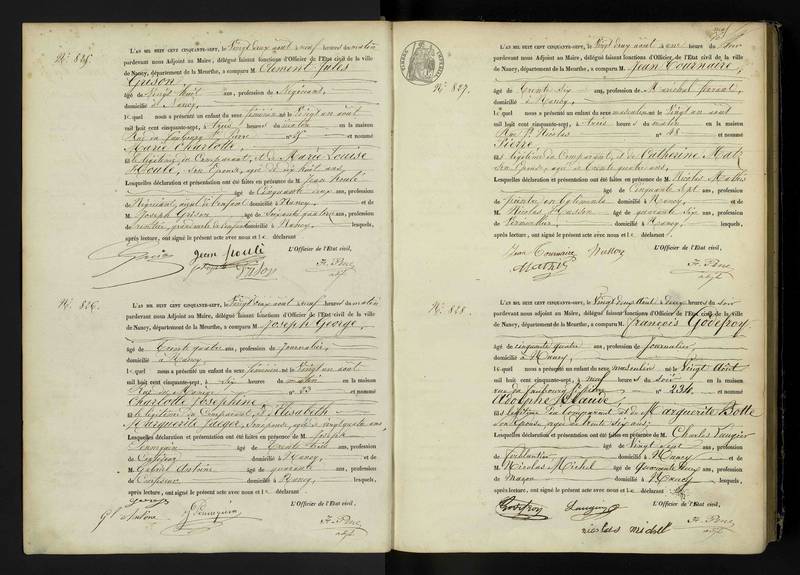 N° 825.
L'AN MIL HUIT CENT CINQUANTE-SEPT, le Vingt deux août neuf heures du matin
pardevant nous Adjoint au Maire, délégué faisant fonctions d'Officier de l'Etat civil de la ville
de Nancy, département de la Meurthe, a comparu M. Clément Jules
Grison
âgé de Vingt huit ans, profession de Négociant,
domicilié à Nancy,
lequel nous a présenté un enfant du sexe féminin né le Vingt un août
mil huit cent cinquante-sept, à trois heures du matin en la maison
Rue du faubourg St Pierre n° et nommé
Marie Charlotte,
fille légitime du Comparant, et de Marie Louise
Houté, son épouse, âgée de dix huit ans,
Lesquelles déclaration et présentation ont été faites en présence de M. Jean Houté
âgé de Cinquante deux ans, profession
de Négociant, ayeul de l'enfant domicilié à Nancy et de
M. Joseph Grison, âgé de Soixante quatre ans, profession
de rentier, domicilié à Nancy, lesquels,
après lecture, ont signé le présent acte avec nous et le déclarant
L'Officier de l'Etat civil,
Jean Houté
Grison
N° 826.
L'AN MIL HUIT CENT CINQUANTE-SEPT, le Vingt deux août neuf heures du matin
pardevant nous Adjoint au Maire, délégué faisant fonctions d'Officier de l'Etat civil de la ville
de Nancy, département de la Meurthe, a comparu M. Joseph George,
âgé de Trente quatre ans, profession de Journalier,
domicilié à Nancy,
lequel nous a présenté un enfant du sexe féminin né le Vingt un août
mil huit cent cinquante-sept, à Six heures du matin en la maison
n° 23 et nommé
Charlotte Joséphine,
fille légitime du Comparant, et d'Elisabeth
Marguerite Jaeger, son épouse, âgée de vingt quatre ans,
Lesquelles déclaration et présentation ont été faites en présence de M. Joseph
âgé de Trente trois ans, profession
de domicilié à Nancy, et de
M. Gabriel Antoine âgé de quarante ans, profession
de domicilié à Nancy, lesquels,
après lecture, ont signé le présent acte avec nous et le déclarant
George
L'Officier de l'Etat civil,
Gl Antoine
N° 827.
L'AN MIL HUIT CENT CINQUANTE-SEPT, le Vingt deux août une heure du soir
pardevant nous Adjoint au Maire, délégué faisant fonctions d'Officier de l'Etat civil de la ville
de Nancy, département de la Meurthe, a comparu M. Jean Tournaire,
âgé de Trente Six ans, profession de Maréchal ferrant,
domicilié à Nancy,
lequel nous a présenté un enfant du sexe masculin né le Vingt un août
mil huit cent cinquante-sept, à trois heures du matin en la maison
Rue St Nicolas n° 48 et nommé
Pierre
fils légitime du Comparant, et de Catherine Matz
son épouse, âgée de trente quatre ans,
Lesquelles déclaration et présentation ont été faites en présence de M. Nicolas
âgé de Cinquante Sept ans, profession
de peintre en bâtiments domicilié à Nancy et de
M. Nicolas âgé de quarante six ans, profession
de domicilié à Nancy, lesquels,
après lecture, ont signé le présent acte avec nous et le déclarant
Jean Tournaire
L'Officier de l'Etat civil,
N° 828.
L'AN MIL HUIT CENT CINQUANTE-SEPT, le Vingt deux Août à deux heures du soir
pardevant nous Adjoint au Maire, délégué faisant fonctions d'Officier de l'Etat civil de la ville
de Nancy, département de la Meurthe, a comparu M. François Godefroy,
âgé de cinquante quatre ans, profession de Journalier
domicilié à Nancy,
lequel nous a présenté un enfant du sexe masculin né le Vingt Août
mil huit cent cinquante-sept, à neuf heures du soir en la maison
rue du faubourg St Pierre n° 234 et nommé
Adolphe Claude,
fils légitime du Comparant et de Marguerite Botte
son épouse, âgée de trente six ans;
Lesquelles déclaration et présentation ont été faites en présence de M. Charles Laugier
âgé de Vingt Sept ans, profession
de ferblantier domicilié à Nancy et de
M. Nicolas Michel âgé de Quarante deux ans, profession
de Maçon domicilié à Nancy lesquels,
après lecture, ont signé le présent acte avec nous et le déclarant
L'Officier de l'Etat civil,
Godefroy Laugier
nicolas michel